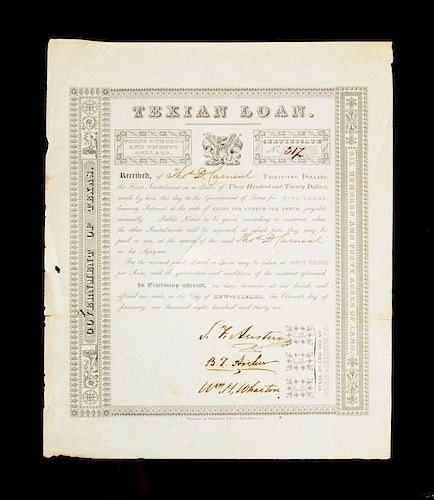 TEXIAN LOAN.
THREE HUNDRED
AND TWENTY
DOLLARS.
CERTIFICATE
217
Received, of Thos. D. Carneal THIRTY-TWO DOLLARS,
the First Instalment on a Loan of Three Hundred and Twenty Dollars,
made by him this day to the Government of Texas for FIVE YEARS,
bearing Interest at the rate of EIGHT PER CENTUM PER ANNUM, payable
annually. Public Notice to be given, according to contract, when
the other Instalments will be required, at which time they may be
paid or not, at the option of the said Thos. D. Carneal
or his Assigns.
For the amount paid, Land in Texas may be taken at FIFTY CENTS
per Acre, with the guarantees and conditions of the contract aforesaid.
In Testimony whereof, we have hereunto set our hands, and
official our seals, in the City of NEW-ORLEANS, this Eleventh day of
January, one thousand eight hundred and thirty-six.
S. F. Austin
B. T. Archer
Wm. H. Wharton
GOVERNMENT OF TEXAS.
SIX HUNDRED AND FORTY ACRES OF LAND.